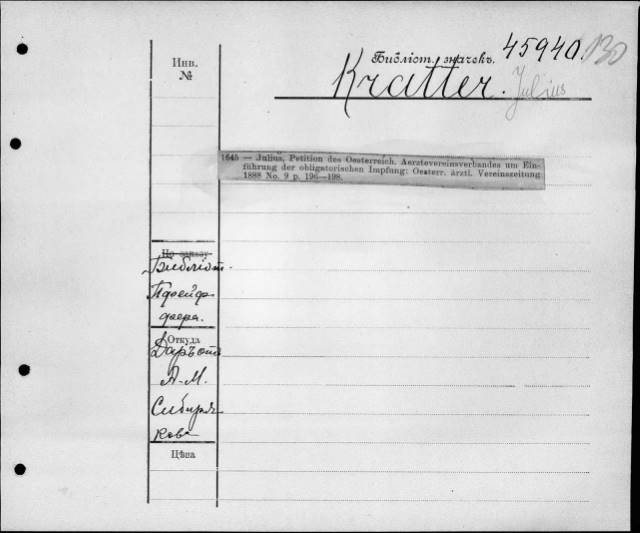 Библіот. значекъ. 45940. 130
Инв.
№
Kratter. Julius
1645 — Julius, Petition des Oesterreich. Aerztevereinsverbandes um Ein-
führung der obligatorischen Impfung: Oesterr. ärztl. Vereinszeitung
1888 No. 9 p. 196—198.
По заказу
Библіот.
Пфейф-
фера.
Откуда
Даръ отъ
А. М.
Сибиря-
кова
Цѣна